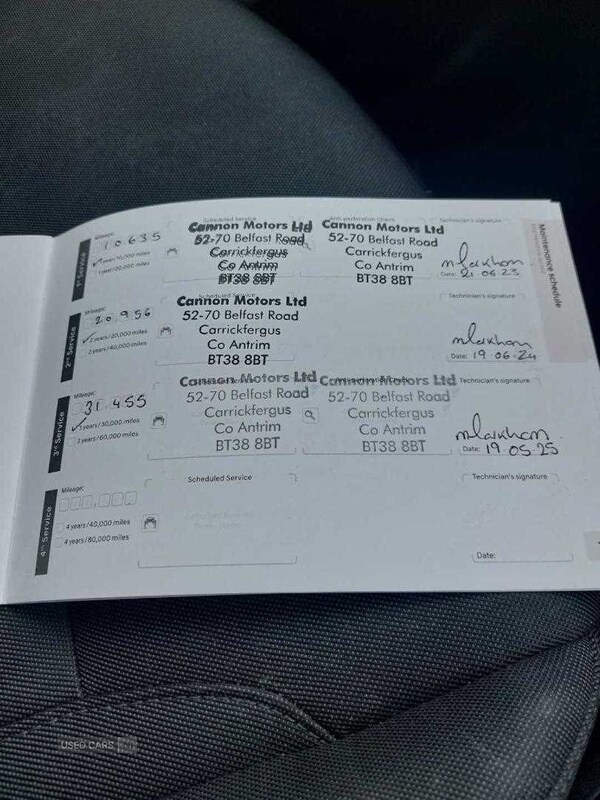 Maintenance schedule
1st Service
Mileage:
10635
1 years/10,000 miles
1 years/20,000 miles
Scheduled Service
Cannon Motors Ltd
52-70 Belfast Road
Carrickfergus
Co Antrim
BT38 8BT
Anti-perforation Check
Cannon Motors Ltd
52-70 Belfast Road
Carrickfergus
Co Antrim
BT38 8BT
Technician's signature
Date: 21.06.23
2nd Service
Mileage:
20,956
2 years/20,000 miles
2 years/40,000 miles
Cannon Motors Ltd
52-70 Belfast Road
Carrickfergus
Co Antrim
BT38 8BT
Technician's signature
Date: 19.06.24
3rd Service
Mileage:
31.455
3 years/30,000 miles
3 years/60,000 miles
Cannon Motors Ltd
52-70 Belfast Road
Carrickfergus
Co Antrim
BT38 8BT
Cannon Motors Ltd
52-70 Belfast Road
Carrickfergus
Co Antrim
BT38 8BT
Technician's signature
Date: 19.05.25
4th Service
Mileage:
4 years/40,000 miles
4 years/80,000 miles
Scheduled Service
Technician's signature
Date:
USED CARS NI